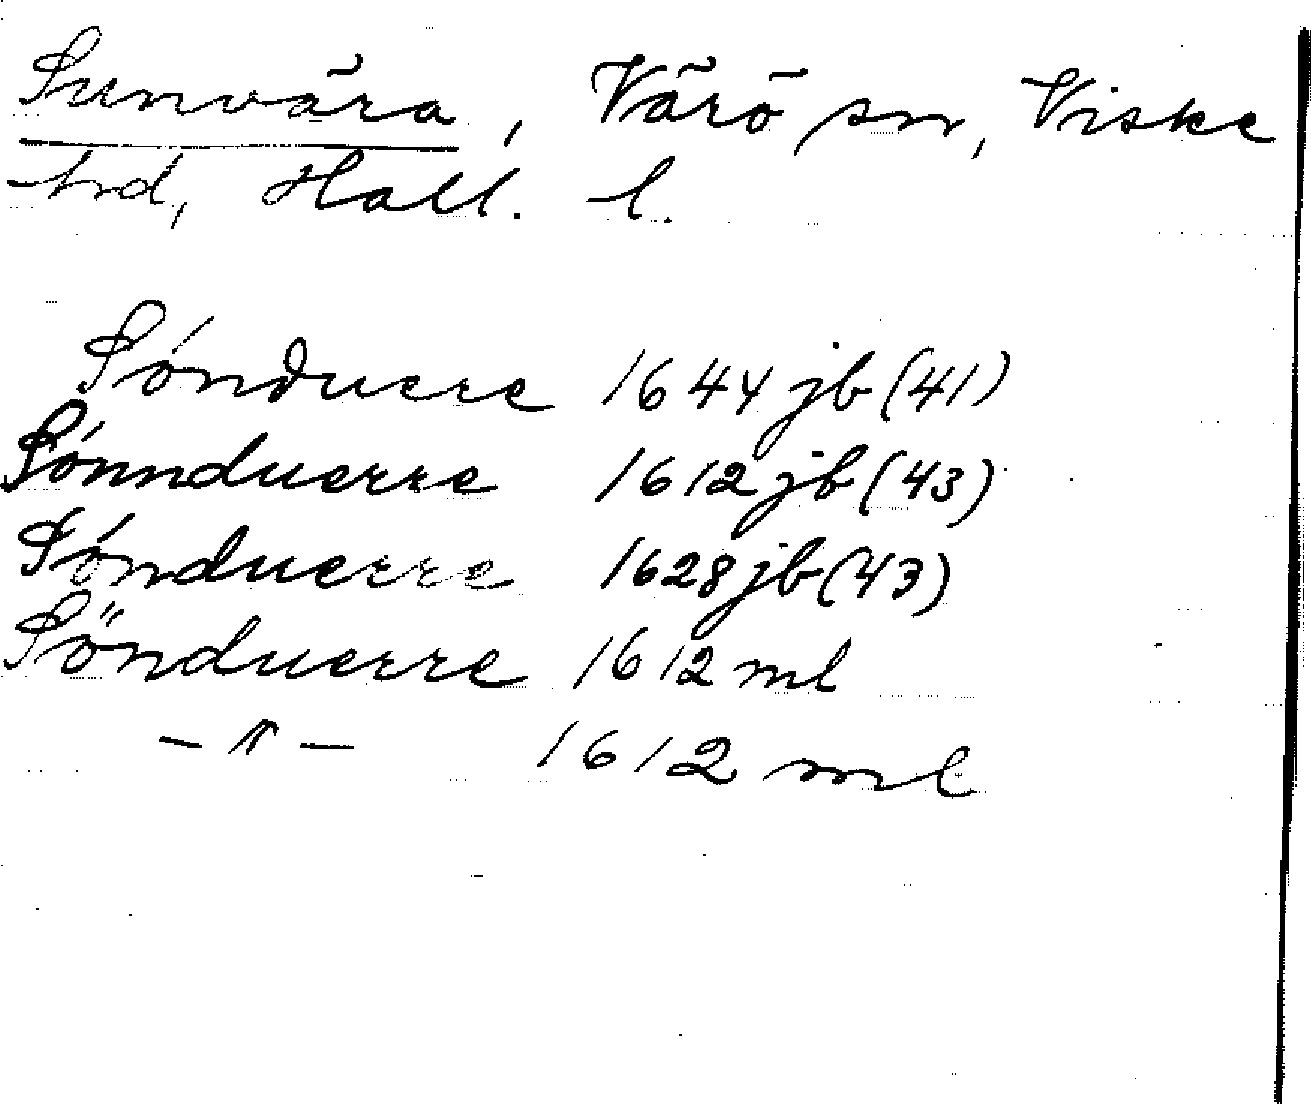 Sunvära, Värö sn, Viske
hrd, Hall. l.
Sónduere 1644 jb (41)
Sónnduerre 1612 jb (43)
Sónduerre 1628 jb (43)
Sönduerre 1612 ml
-"- 1612 ml